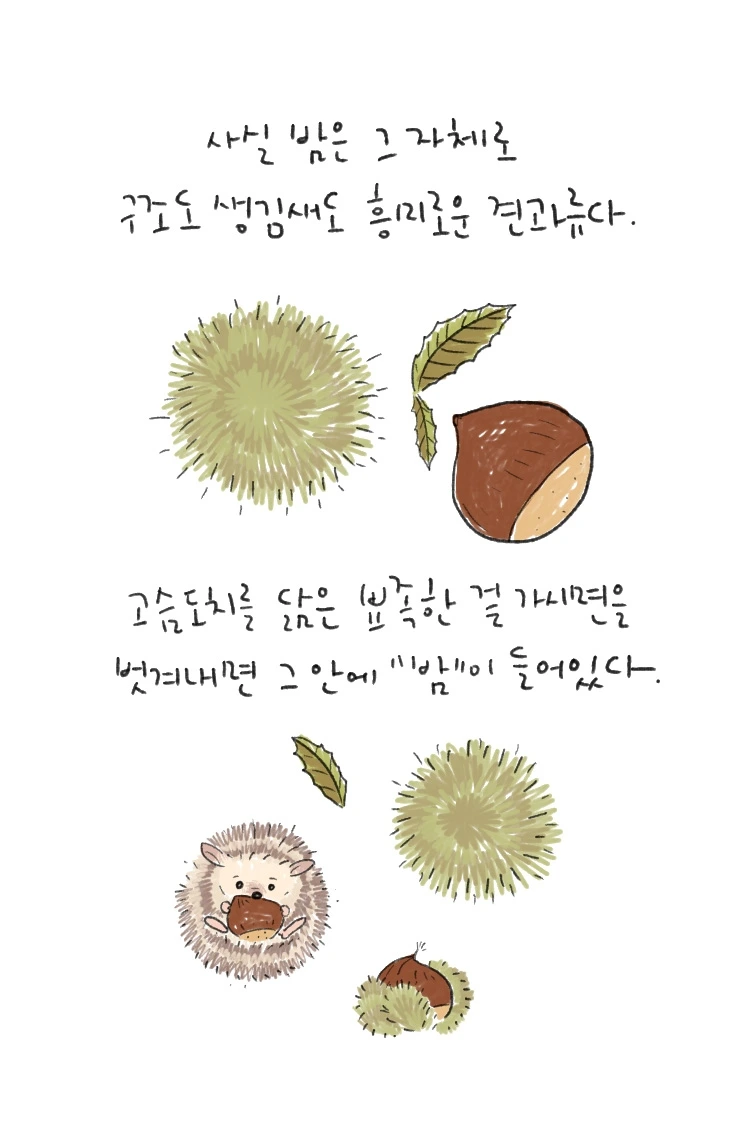 사실 밤은 그 자체로
구조도 생김새도 흥미로운 견과류다.
고슴도치를 닮은 뾰족한 겉 가시면을
벗겨내면 그 안에 "밤"이 들어있다.